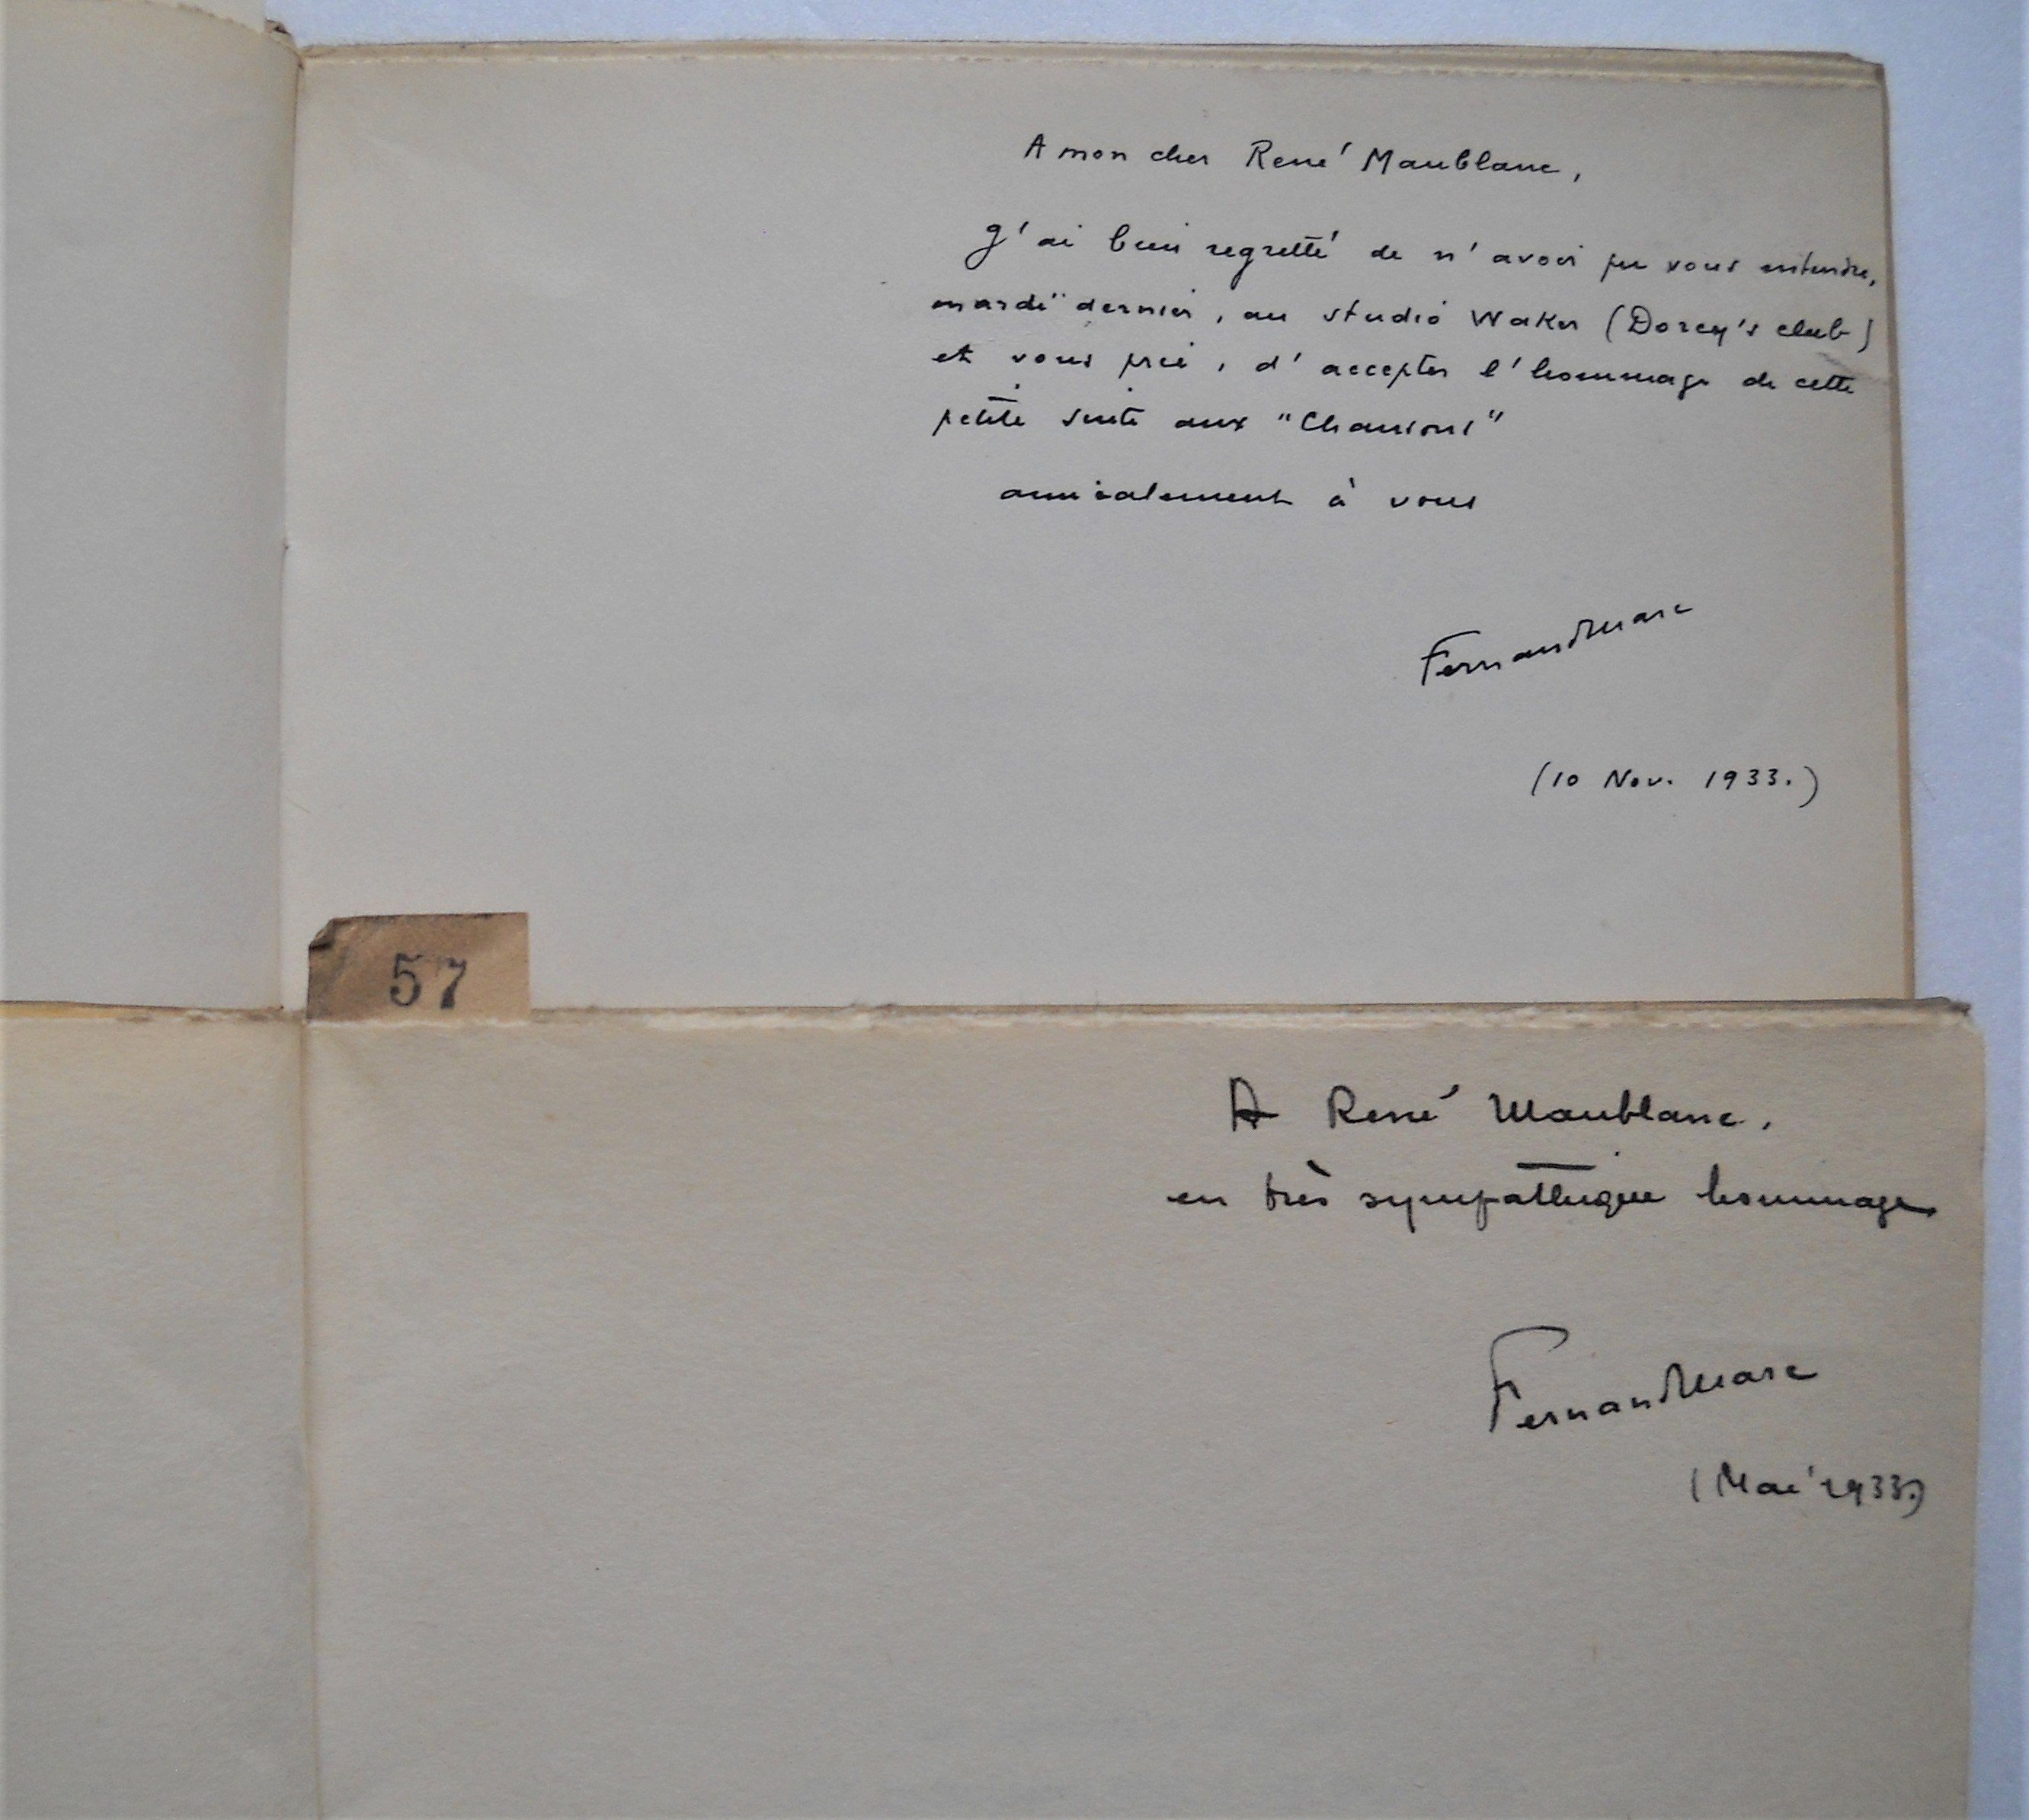 A mon cher René Maublanc,
J'ai bien regretté de n'avoir pu vous entendre,
mardi dernier, au studio Waker (Dorcy's club)
et vous prie, d'accepter l'hommage de cette
petite suite aux "Chansons"
amicalement à vous
Fernand Marc
(10 Nov. 1933.)
57
A René Maublanc,
en très sympathique hommage
Fernand Marc
(Mai 1933)